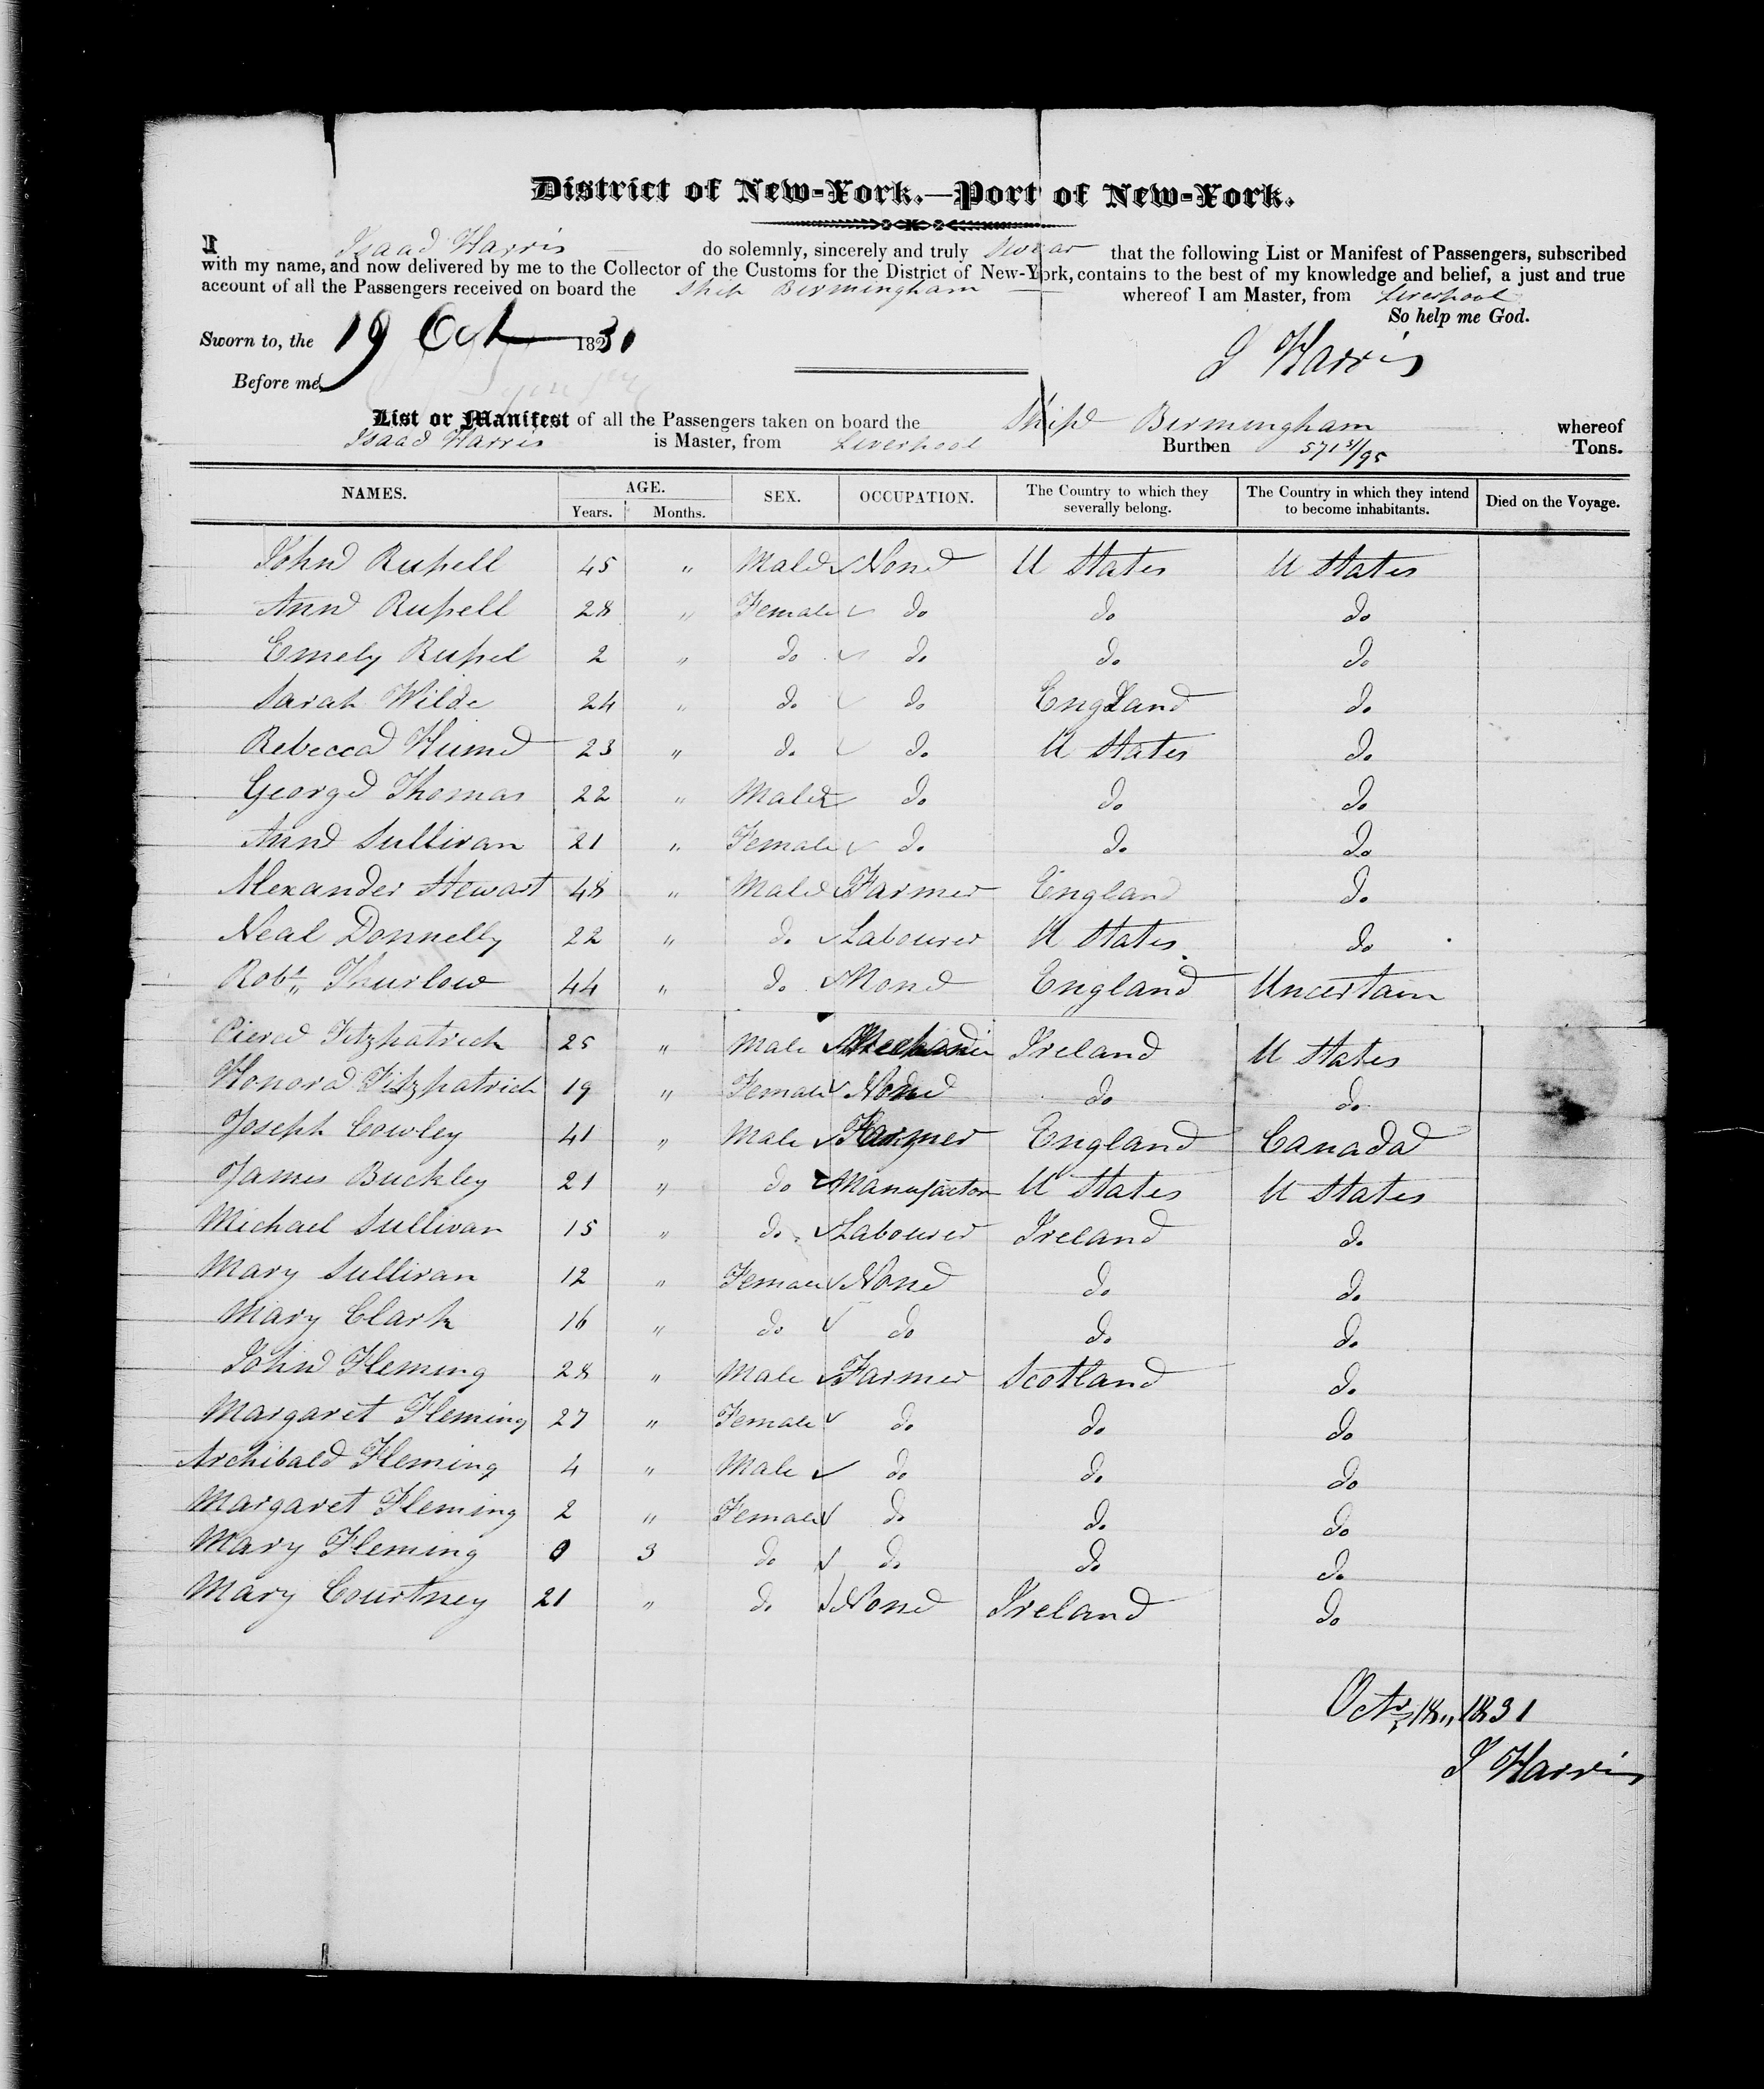 District of New-York.—Port of New-York.
I Isaac Harris do solemnly, sincerely and truly swear that the following List or Manifest of Passengers, subscribed
with my name, and now delivered by me to the Collector of the Customs for the District of New-York, contains to the best of my knowledge and belief, a just and true
account of all the Passengers received on board the Ship Birmingham whereof I am Master, from Liverpool
So help me God.
Sworn to, the 19 Oct 1831
I Harris
Before me,
List or Manifest of all the Passengers taken on board the Ship Birmingham whereof
Isaac Harris is Master, from Liverpool Burthen 571 31/95 Tons.
NAMES. AGE. Years. Months. SEX. OCCUPATION. The Country to which they severally belong. The Country in which they intend to become inhabitants. Died on the Voyage.
John Russell 45 " Male None U States U States
Ann Russell 28 " Female do do do
Emely Russel 2 " do do do do
Sarah Wilde 24 " do do England do
Rebecca Hume 23 " do do U States do
George Thomas 22 " Male do do do
Ann Sullivan 21 " Female do do do
Alexander Stewart 48 " Male Farmer England do
Neal Donnelly 22 " do Labourer U States do
Robt. Thurlow 44 " do None England Uncertain
Pierce Fitzpatrick 25 " Male Mechanic Ireland U States
Honora Fitzpatrick 19 " Female None do do
Joseph Cowley 41 " Male Farmer England Canada
James Buckley 21 " do Manufactor U States U States
Michael Sullivan 15 " do Labourer Ireland do
Mary Sullivan 12 " Female None do do
Mary Clark 16 " do do do do
John Fleming 28 " Male Farmer Scotland do
Margaret Fleming 27 " Female do do do
Archibald Fleming 4 " Male do do do
Margaret Fleming 2 " Female do do do
Mary Fleming 0 3 do do do do
Mary Courtney 21 " do None Ireland do
Octr 18,, 1831
I Harris